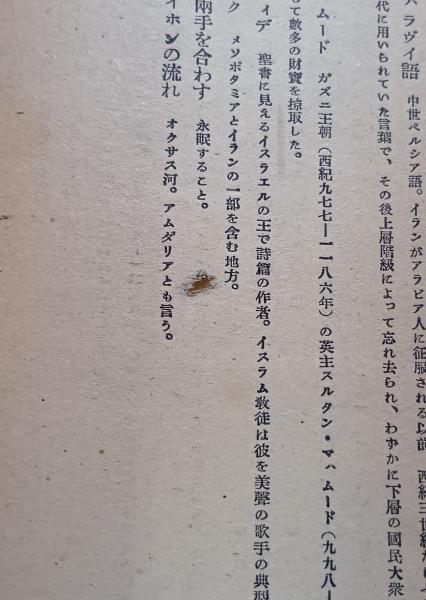 ハラヴイ語　中世ペルシア語。イランがアラビア人に征服される以前　西紀三世紀
代に用いられていた言葉で、その後上層階級によって忘れ去られ、わずかに下層の國民大衆
ムード　ガズニ王朝（西紀九七七―一一八六年）の英主スルタン・マハムード（九九八―
して數多の財寶を掠取した。
ィデ　聖書に見えるイスラエルの王で詩篇の作者。イスラム敎徒は彼を美聲の歌手の典型
ク　メソポタミアとイランの一部を含む地方。
兩手を合わす　永眠すること。
イホンの流れ　オクサス河。アムダリアとも言う。